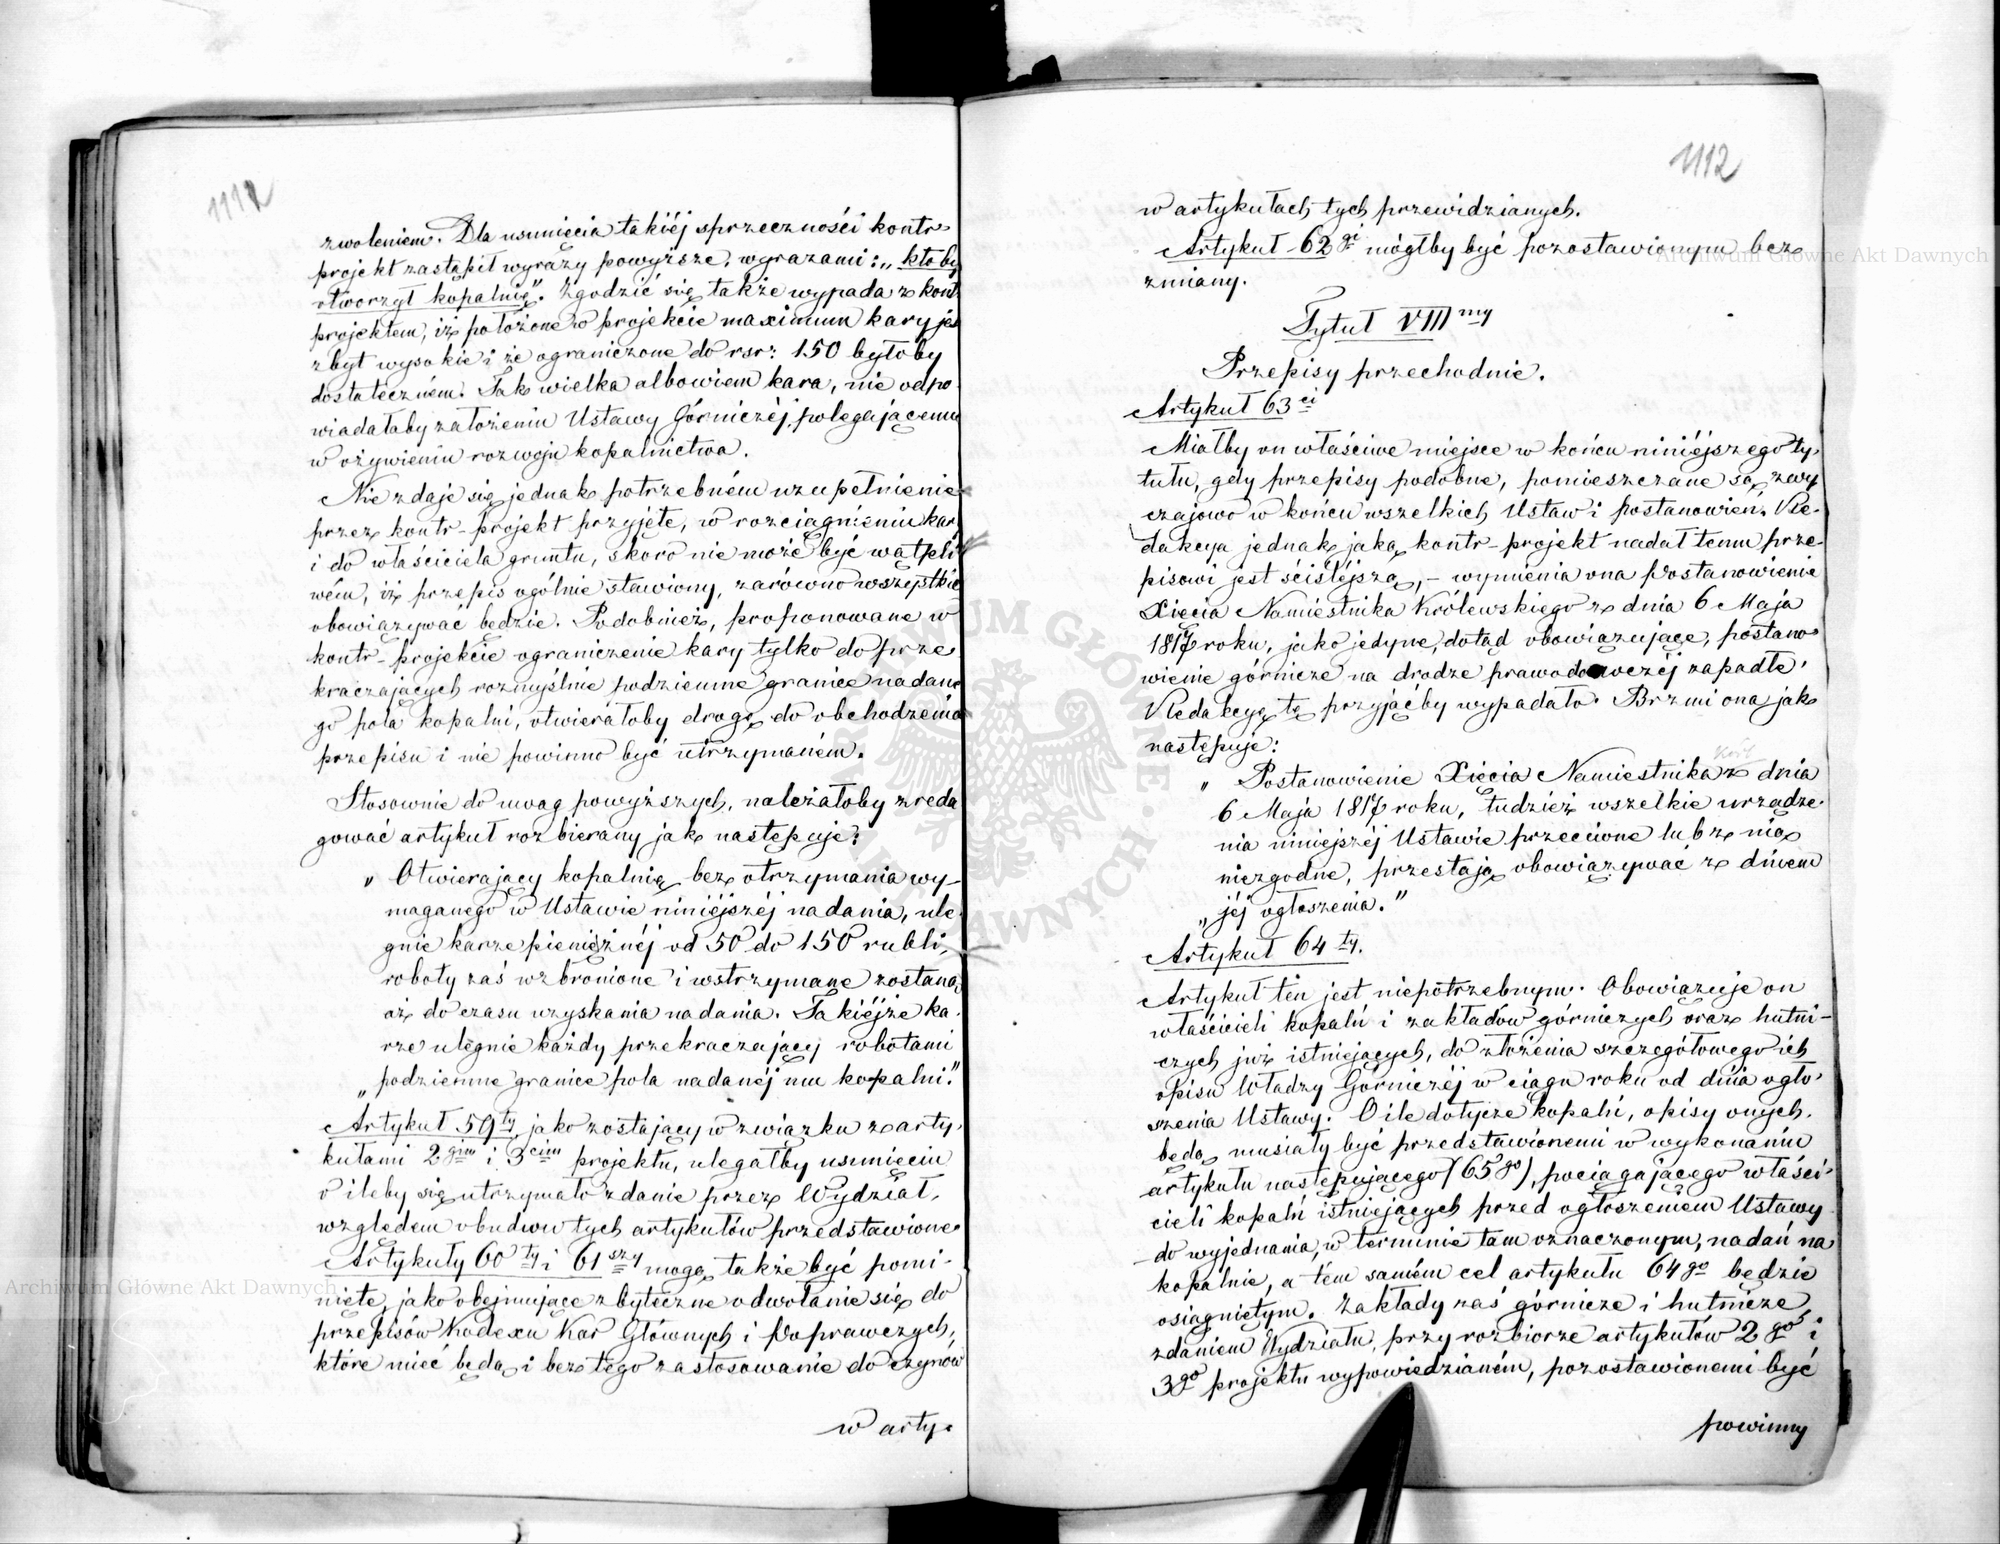 zwoleniem. Dla usunięcia takiéj sprzeczności kontr-
projekt zastąpił wyrazy powyższe, wyrazami: „ktoby
otworzył kopalnię". Zgodzić się także wypada z kontr
projektem, iż położone w projekcie maximum kary jes
zbyt wysokie i że ograniczone do rsr: 150 byłoby
dostateczném. Tak wielka albowiem kara, nie odpo-
wiadałaby założeniu Ustawy Górniczéj, polegającemu
w ożywieniu rozwoju kopalnictwa.
Nie zdaje się jednak potrzebném uzupełnienie
przez kontr-projekt przyjęte, w rozciągnieniu kar
i do właściciela gruntu, skoro nie może być wątpli
wém, iż przepis ogólnie stawiony, zarówno wszystkie
obowiązywać będzie. Podobnież, proponowane w
kontr-projekcie ograniczenie kary tylko do prze-
kraczających rozmyślnie podziemne granice nadane
go pola kopalni, otwierałoby drogę do obchodzenia
przepisu i nie powinno być utrzymaném.
Stosownie do uwag powyższych, należałoby zreda
gować artykuł rozbierany jak następuje:
„ Otwierający kopalnię bez otrzymania wy-
maganego w Ustawie niniéjszéj nadania, ule-
gnie karze pieniężnéj od 50 do 150 rubli,
roboty zaś wzbronione i wstrzymane zostaną
aż do czasu uzyskania nadania. Takiéjże ka-
rze ulegnie każdy przekraczający robotami
„podziemne granice pola nadanéj mu kopalni."
Artykuł 59ty, jako zostający w związku z arty-
kułami 2gim i 3cim projektu, ulegałby usunięciu
o ileby się utrzymało zdanie przez Wydział,
względem obudwu tych artykułów przedstawione
Artykuły 60ty i 61szy mogą także być pomi-
nięte, jako obejmujące zbyteczne odwołanie się do
przepisów Kodexu Kar Głównych i Poprawczych,
które mieć będą i bez tego zastosowanie do czynów
w arty-
1112
w artykułach tych przewidzianych.
Artykuł 62gi mógłby być pozostawionym bez
zmiany.
Tytuł VIIImy
Przepisy przechodnie.
Artykuł 63ci
Miałby on właściwe miejsce w końcu niniéjszego ty-
tułu, gdy przepisy podobne, pomieszczane są zwy
czajowo w końcu wszelkich Ustaw i postanowień. Re-
dakcya jednak jaką kontr-projekt nadał temu prze-
pisowi jest ściślejszą, – wymienia ona Postanowienie
Xięcia Namiestnika Królewskiego z dnia 6 Maja
1817 roku, jako jedyne, dotąd obowiązujące, postano-
wienie górnicze na drodze prawodawczéj zapadłe.
Redakcyę tę przyjąćby wypadało. Brzmi ona jak
następuje:
„ Postanowienie Xięcia Namiestnika z dnia
6 Maja 1817 roku, tudzież wszelkie urządze-
nia niniejszéj Ustawie przeciwne lub z nią
niezgodne, przestają obowiązywać z dniem
„jéj ogłoszenia."
Artykuł 64ty.
Artykuł ten jest niepotrzebnym. Obowiązuje on
właścicieli kopalń i zakładów górniczych oraz hutni-
czych już istniejących, do złożenia szczegółowego ich
opisu Władzy Górniczéj w ciągu roku od dnia ogło-
szenia Ustawy. O ile dotycze kopalń, opisy onych,
będą musiały być przedstawionemi w wykonaniu
artykułu następującego (65go), pociągającego właści-
cieli kopalń istniejących przed ogłoszeniem Ustawy
do wyjednania, w terminie tam oznaczonym, nadań na
kopalnie, a tém samém cel artykułu 64go będzie
osiągniętym. Zakłady zaś górnicze i hutnicze,
zdaniem Wydziału, przy rozbiorze artykułów 2go i
3go projektu wypowiedzianém, pozostawionemi być
powinny
Archiwum Główne Akt Dawnych
Archiwum Główne Akt Dawnych
ARCHIWUM GŁÓWNE AKT DAWNYCH